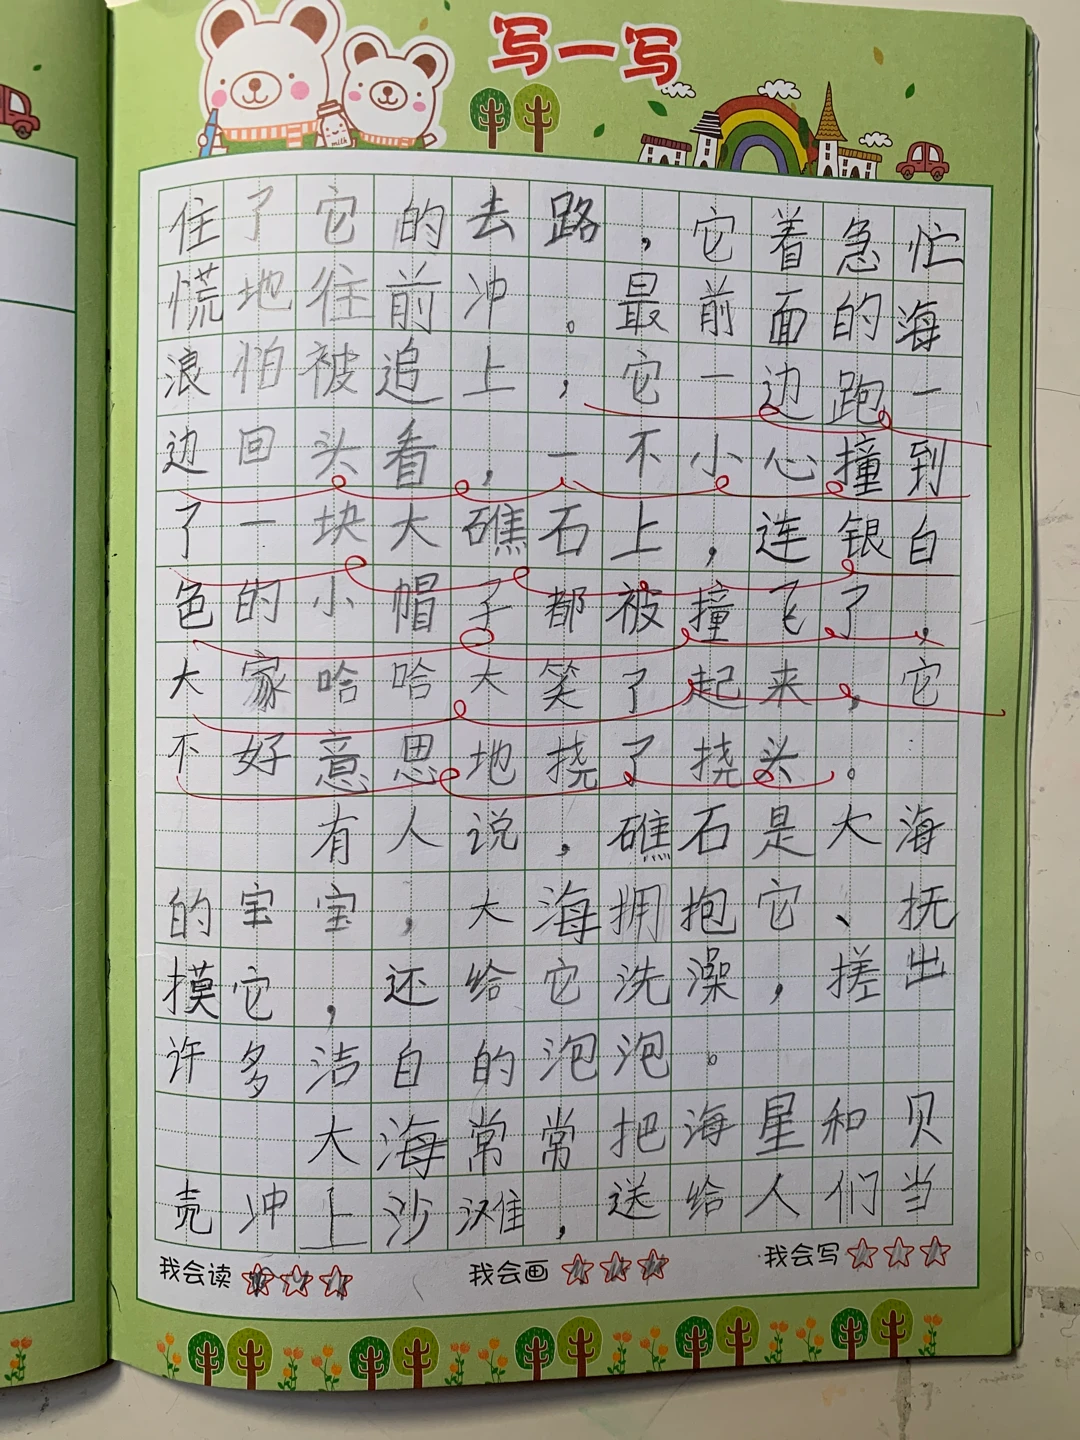 写一写
milk
住了它的去路，它着急忙
慌地往前冲。最前面的海
浪怕被追上，它一边跑一
边回头看，一不小心撞到
了一块大礁石上，连银白
色的小帽子都被撞飞了，
大家哈哈大笑了起来，它
不好意思地挠了挠头。
有人说，礁石是大海
的宝宝，大海拥抱它、抚
摸它，还给它洗澡，搓出
许多洁白的泡泡。
大海常常把海星和贝
壳冲上沙滩，送给人们当
我会读 我会画 我会写